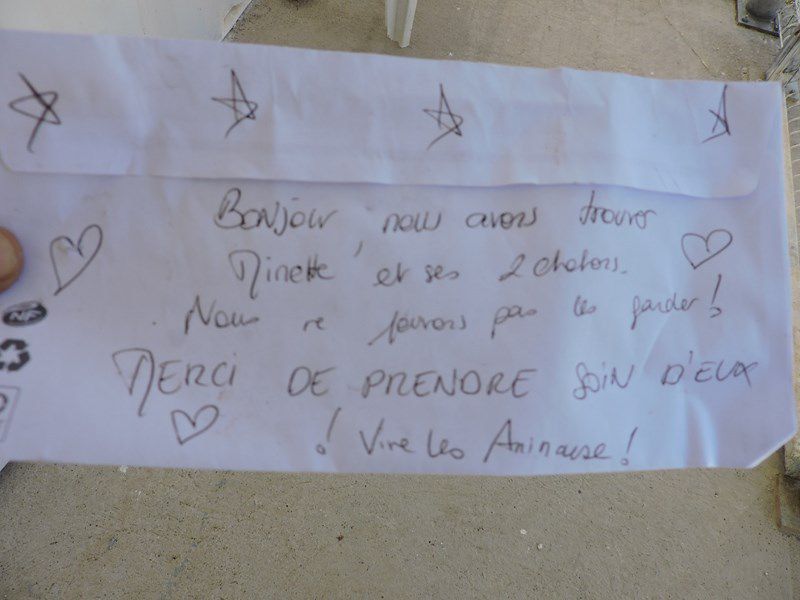 Bonjour, nous avons trouver
Minette et ses 2 chatons.
Nous ne pouvons pas les garder!
MERCI DE PRENDRE SOIN D'EUX
! Vive les Aninause!
NF